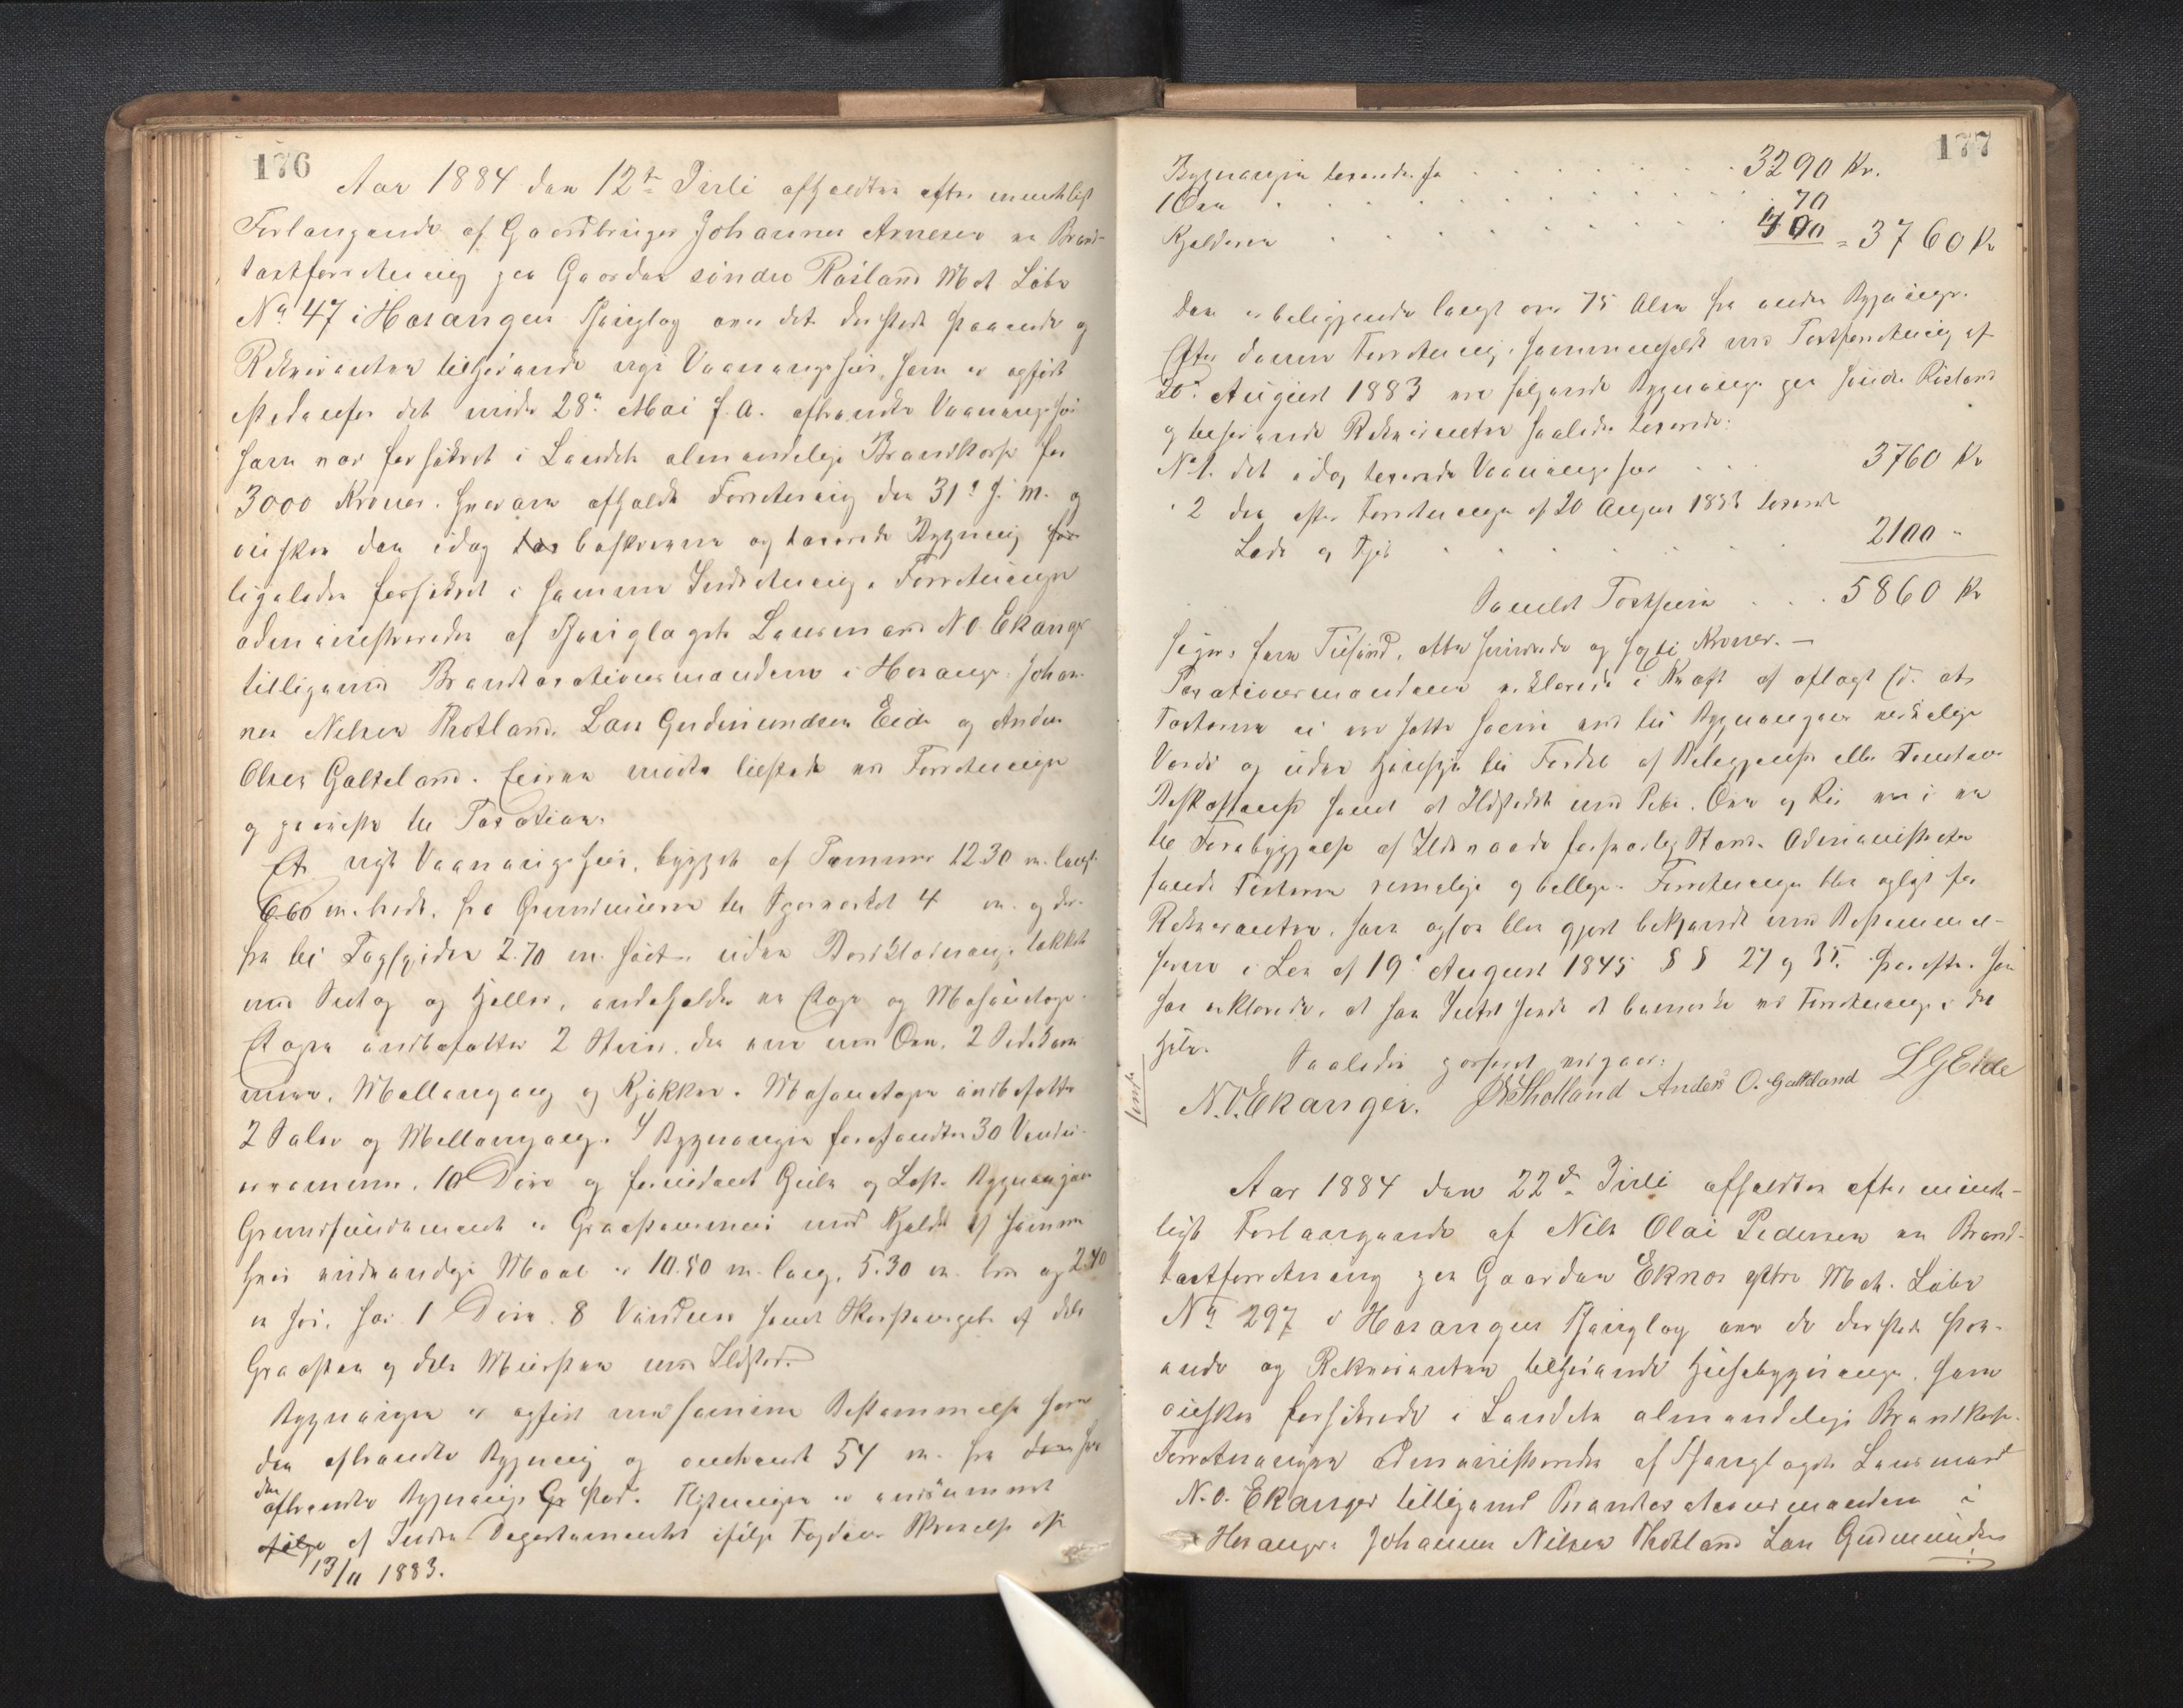 176
Aar 1884 den 12te Juli afholdtes efter mundtligt
Forlangende af Gaardbruger Johannes Arnesen en Brand-
taxtforretning paa Gaarden søndre Røsland Mat. Løbe
No 47 i Hosanger Thinglag over det dersteds staaende og
Rekvirenten tilhørende nye Vaaningshus, som er opført
istedenfor det under 28de Mai f. A. afbrændte Vaaningshus
som var forsikret i Landets almindelige Brandkasse for
3000 Kroner. hvorom afholdt Forretning den 31te s. m. og
ønskes den idag tax beskrevne og taxerede Bygning for
ligeledes forsikret i samme Indretning. Forretningen
administreredes af Thinglagets Lensmand N. O. Ekanger
tilligemed Brandtaxationsmændene i Hosanger Johan-
nes Nilsen Thotland, Lars Gudmundsen Eide og Anders
Olsen Galteland. Eieren mødte tilstede ved Forretningen
og paaviste til Taxation.
Et nyt Vaaningshus, bygget af Tømmer 12.30 m. langt
6.60 m. bredt, fra Grundmuren til Tagværket 4 m. og der-
fra til Tagspidsen 2.70 m. høit, uden Bordklædning, takket
med Suttag og Heller, indeholder en Etage og Mesanetage.
Etagen indbefatter 2 Stuer, den ene med Ovn, 2 Sidekam-
mere, Mellemgang og Kjøkken. Mesanetagen indbefatter
2 Sale og Mellemgang. I Bygningen forefandtes 30 Vindu-
esrammer, 10 Døre og fornødent Gulv og Loft. Bygningens
Grundfundament er Graastensmur med Kjelder af samme
hvis indvendige Maal er 10.50 m. lang, 5.30 m. bred og 2.40
m høi, har 1 Dør, 8 Vinduer samt Skorstenspibe af dels
Graasten og dels Mursten med Ildsted.
Bygningen er opført med samme Bestemmelse som
den afbrændte Bygning og omtrent 54 m. fra den for
den afbrændte Bygnings Gr Sted. Flytningen er indrømmet
ifølge af Indre Departementet ifølge Fogdens Skrivelse af
13/11 1883.
177
Bygningen taxeredes for . . . 3290 Kr.
1 Ovn . . . 70
Kjelderen . . . 400 = 3760 Kr
Den er beliggende langt over 75 Alen fra andre Bygninger.
Efter denne Forretning, sammenholdt med Taxtforretning af
20de August 1883 ere følgende Bygninger paa søndre Røsland
og tilhørende Rekvirenten saaledes taxerede:
No 1. det idag taxerede Vaaningshus . . . 3760 Kr
" 2 den efter Forretningen af 20 August 1883 taxerede
Lade og Fjøs . . . 2100 "
Samlet Taxtsum . . . 5860 Kr
siger fem Tusind, otte hundrede og sexti Kroner. —
Taxationsmændene erklærede i Kraft af aflagt Ed, at
Taxterne ei ere satte høiere end til Bygningernes virkelige
Værdi og uden Hensyn til Fordel af Beliggenhed eller Tomtens
Beskaffenhed samt at Ildstedet med Pibe, Ovn og Rør ere i en
til Forebyggelse af Ildsvaade forsvarlig Stand. Administrator
fandt Taxterne rimelige og billige. Forretningen blev oplæst for
Rekvirenten, som ogsaa blev gjort bekjendt med Bestemmel-
serne i Lov af 19de August 1845 § § 27 og 35. hvorefter han
har erklæret, at han Intet havde at bemærke ved Forretningen i det
Hele.
Saaledes passeret vidgaar:
N. O. Ekanger. J N Thotland Anders O. Galteland L G Eide
Aar 1884 den 22de Juli afholdtes efter mundt-
ligt Forlangende af Nils Olai Pedersen en Brand-
taxtforretning paa Gaarden Eknes yttre Mat. Løbe
No 297 i Hosanger Thinglag over de dersteds staa-
ende og Rekvirenten tilhørende Husebygninger, som
ønskes forsikrede i Landets almindelige Brandkasse.
Forretningen administreredes af Thinglagets Lensmand
N. O. Ekanger tilligemed Brandtaxationsmændene i
Hosanger Johannes Nilsen Thotland Lars Gudmundsen